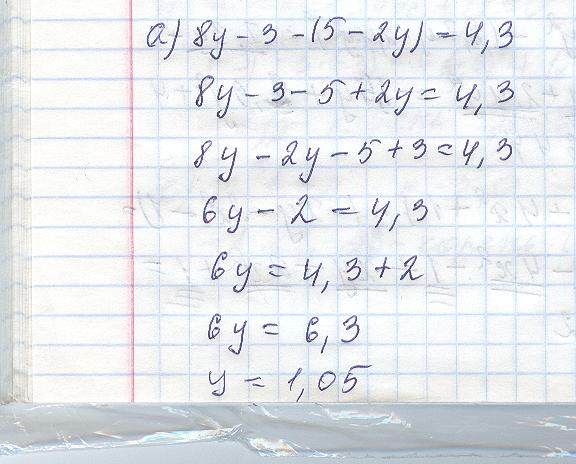 а) 8y - 3 - (5 - 2y) = 4,3
8y - 3 - 5 + 2y = 4,3
8y - 2y - 5 + 3 = 4,3
6y - 2 = 4,3
6y = 4,3 + 2
6y = 6,3
y = 1,05